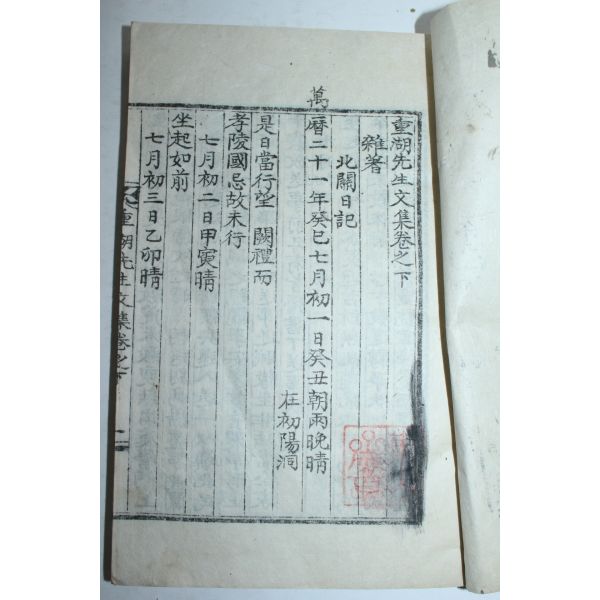 重湖先生文集卷之下
雜著
北關日記
萬曆二十一年癸巳七月初一日癸丑朝雨晚晴
在初陽洞
是日當行望 闕禮而
孝陵國忌故未行
七月初二日甲寅晴
坐起如前
七月初三日乙卯晴
重湖先生文集卷之下
一